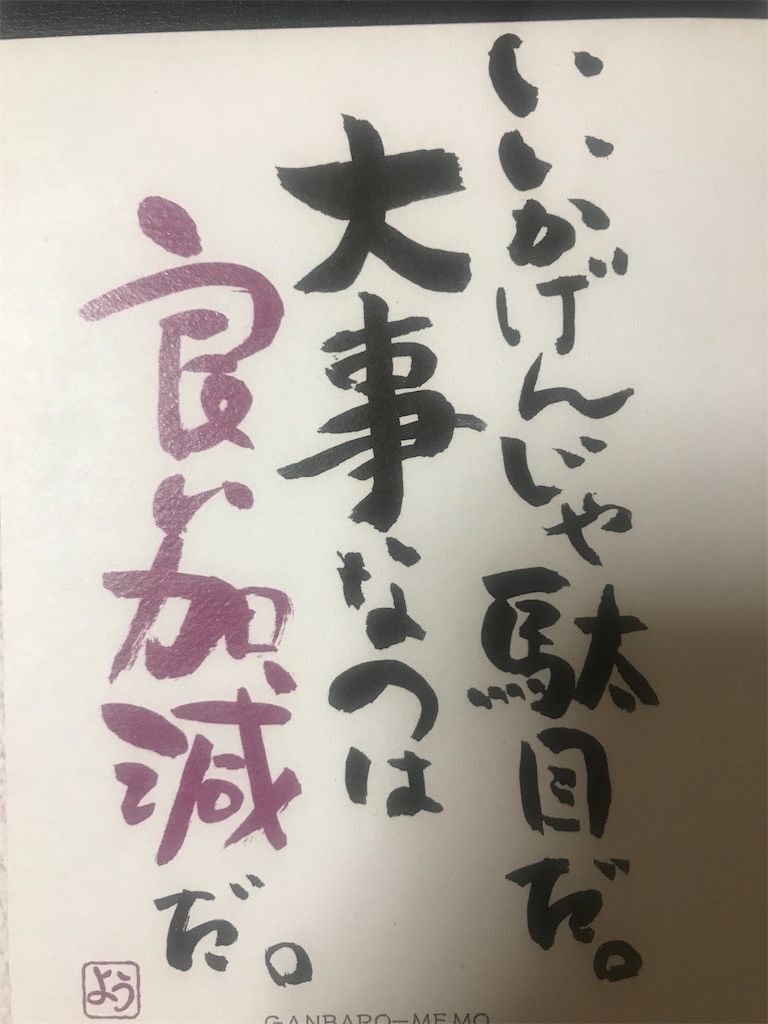 いいかげんじゃ駄目だ。
大事なのは
良い加減だ。
よう
GANBARO-MEMO